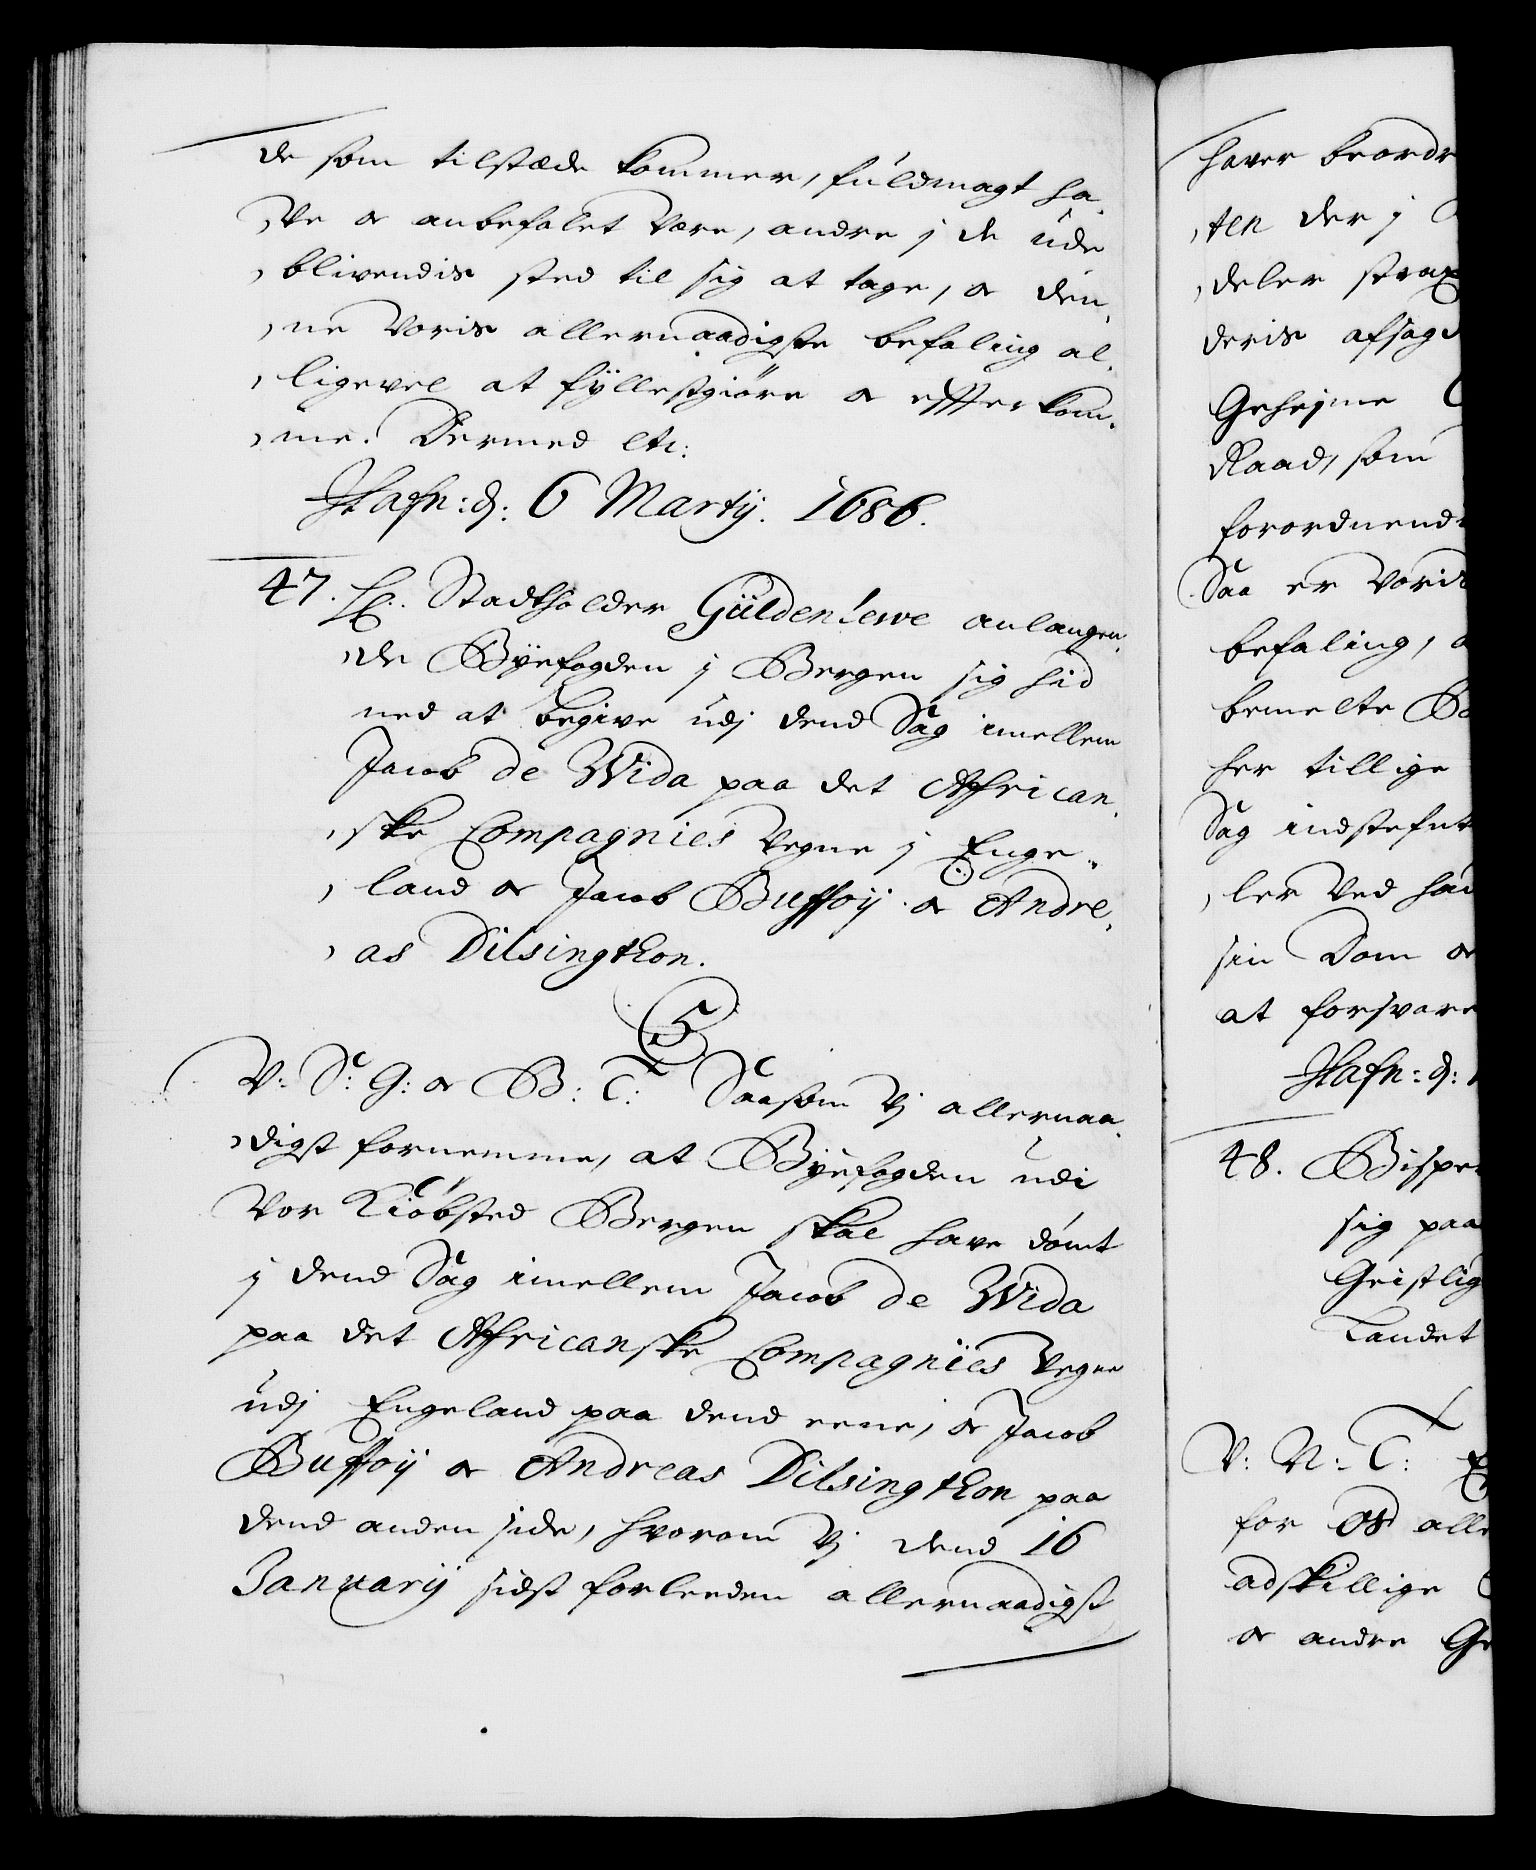 de som tilstæde kommer, fuldmagt ha,
,ve oc anbefalet være, andre j de ude
,blivendis sted til sig at tage, oc den,
,ne Voris allernaadigste befaling al,
,ligevel at fyllestgiøre oc effterkom,
,me. Dermed etc:
Hafn: d: 6 Martij. 1686.
47. H: Stadtholder Güldenlewe anlangen,
,de Byefogden j Bergen sig hid
ned at begive udj dend Sag imellem
Jacob de Wida paa det African,
,ske Compagnies Vegne j Enge,
,land oc Jacob Buffoij oc Andre,
,as Dilsingthon.
C 5
V: S: G: oc B: T: Saasom Vj allernaa,
,digst fornemme, at Byefogden udi
Vor Kiøbsted Bergen skal have dømt
j dend Sag imellem Jacob de Wida
paa det Africanske Compagnies Vegne
udj Engeland paa dend eene, oc Jacob
Buffoij oc Andreas Dilsingthon paa
dend anden side, hvorom Vj dend 16
Januarij sidst forleeden allernaadigst
haver beordr
,ten der j
,deler strax
deris afsagd
Geheime
Raad, som
forordnend
Saa er Voris
befaling, a
bemelte B
her tillige
Sag indstefnt
,ler Ved ha
sin Dom oc
at forsvare
Hafn: d:
48. Bispe
sig paa
Geistlig
Landet
V: N: T:
for os alle
adskillige
oc andre Ge